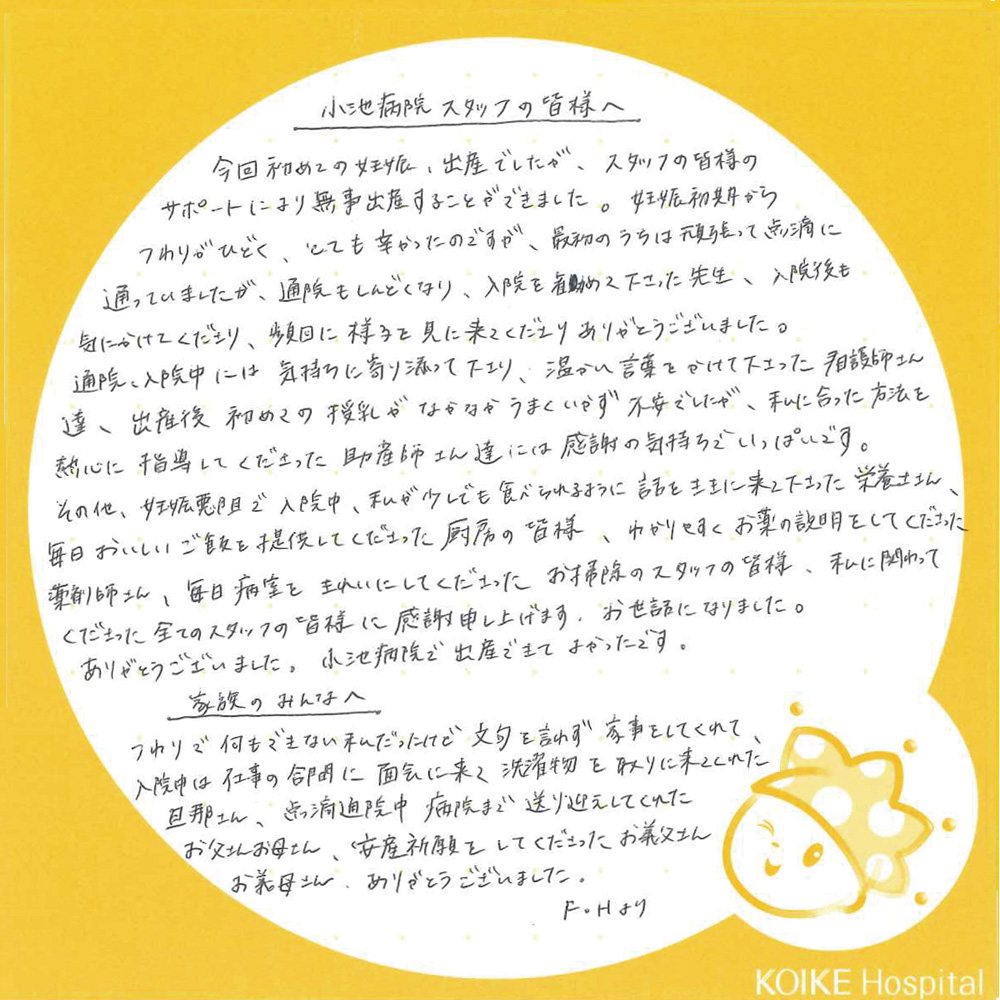 小池病院スタッフの皆様へ
今回初めての妊娠、出産でしたが、スタッフの皆様の
サポートにより無事出産することができました。妊娠初期から
つわりがひどく、とても辛かったのですが、最初のうちは頑張って点滴に
通っていましたが、通院もしんどくなり、入院を勧めて下さった先生、入院後も
気にかけてくださり、頻回に様子を見に来てくださりありがとうございました。
通院、入院中には気持ちに寄り添って下さり、温かい言葉をかけて下さった看護師さん
達、出産後初めての授乳がなかなかうまくいかず不安でしたが、私に合った方法を
熱心に指導してくださった助産師さん達には感謝の気持ちでいっぱいです。
その他、妊娠悪阻で入院中、私が少しでも食べられるように話をききに来て下さった栄養士さん、
毎日おいしいご飯を提供してくださった厨房の皆様、わかりやすくお薬の説明をしてくださった
薬剤師さん、毎日病室をきれいにしてくださったお掃除のスタッフの皆様、私に関わって
くださった全てのスタッフの皆様に感謝申し上げます。お世話になりました。
ありがとうございました。小池病院で出産できてよかったです。
家族のみんなへ
つわりで何もできない私だったけど文句を言わず家事をしてくれて、
入院中は仕事の合間に面会に来て洗濯物を取りに来てくれた
旦那さん、点滴通院中病院まで送り迎えしてくれた
お父さんお母さん、安産祈願をしてくださったお義父さん
お義母さん、ありがとうございました。
F・Hより
KOIKE Hospital